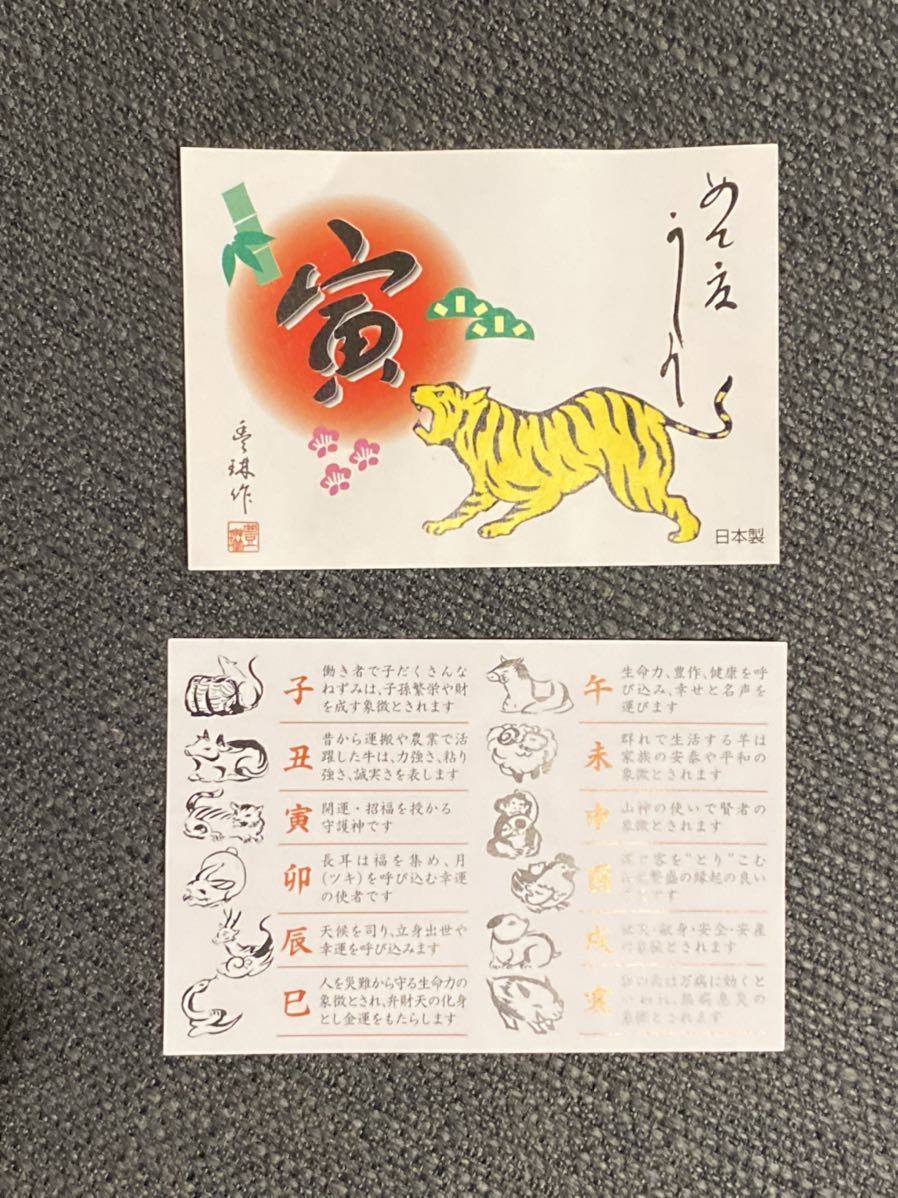 めで度
うしお
寅
豊琳作
日本製
子
働き者で子だくさんな
ねずみは、子孫繁栄や財
を成す象徴とされます
丑
昔から運搬や農業で活
躍した牛は、力強さ、粘り
強さ、誠実さを表します
寅
開運・招福を授かる
守護神です
卯
長耳は福を集め、月
(ツキ)を呼び込む幸運
の使者です
辰
天候を司り、立身出世や
幸運を呼び込みます
巳
人を災難から守る生命力の
象徴とされ、弁財天の化身
とし金運をもたらします
午
生命力、豊作、健康を呼
び込み、幸せと名声を
運びます
未
群れで生活する羊は
家族の安泰や平和の
象徴とされます
申
山神の使いで賢者の
象徴とされます
酉
客を"とり"こむ
繁盛の縁起の良い
です
戌
献身・安全・安産
の象徴とされます
亥
は万病に効くと
無病息災の
象徴とされます